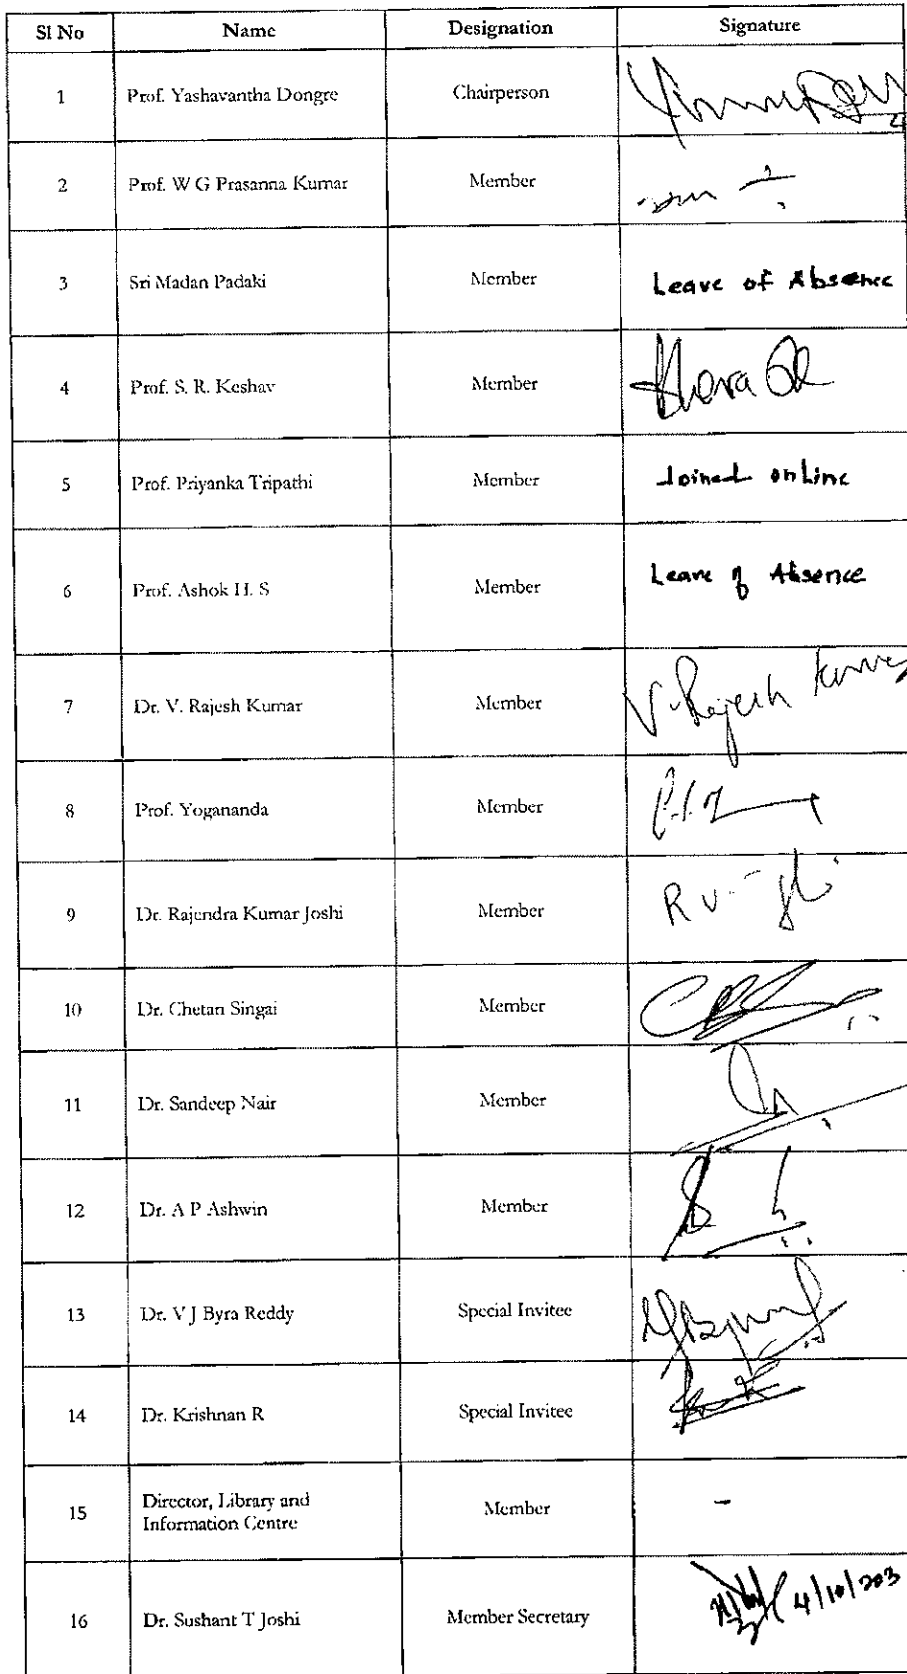 Sl No Name Designation Signature
1 Prof. Yashavantha Dongre Chairperson
2 Prof. W G Prasanna Kumar Member
3 Sri Madan Padaki Member Leave of Absence
4 Prof. S. R. Keshav Member
5 Prof. Priyanka Tripathi Member Joined online
6 Prof. Ashok H. S Member Leave of Absence
7 Dr. V. Rajesh Kumar Member V. Rajesh Kumar
8 Prof. Yogananda Member
9 Dr. Rajendra Kumar Joshi Member
10 Dr. Chetan Singai Member
11 Dr. Sandeep Nair Member
12 Dr. A P Ashwin Member
13 Dr. V J Byra Reddy Special Invitee
14 Dr. Krishnan R Special Invitee
15 Director, Library and
Information Centre Member -
16 Dr. Sushant T Joshi Member Secretary 4/10/203